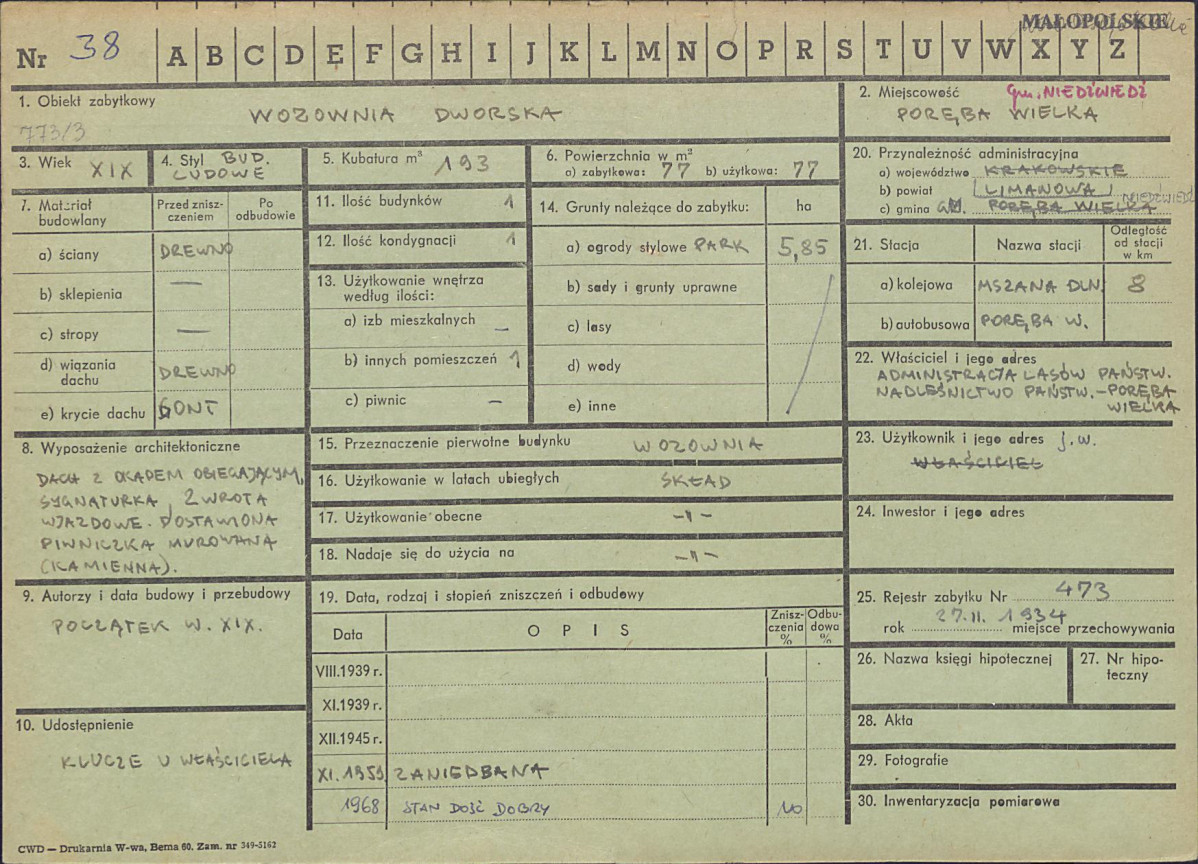 MAŁOPOLSKIE
Nr 38 A B C D E F G H I J K L M N O P R S T U V W X Y Z
1. Obiekt zabytkowy
WOZOWNIA DWORSKA
773/3
2. Miejscowość gm. NIEDŹWIEDŹ
PORĘBA WIELKA
3. Wiek XIX
4. Styl BUD.
LUDOWE
5. Kubatura m³ 193
6. Powierzchnia w m²
a) zabytkowa: 77 b) użytkowa: 77
20. Przynależność administracyjna
a) województwo KRAKOWSKIE
b) powiat LIMANOWA
c) gmina PORĘBA WIELKA NIEDŹWIEDŹ
7. Materiał
budowlany
Przed znisz-
czeniem
Po
odbudowie
a) ściany DREWNO
b) sklepienia —
c) stropy —
d) wiązania
dachu DREWNO
e) krycie dachu GONT
11. Ilość budynków 1
12. Ilość kondygnacji 1
13. Użytkowanie wnętrza
według ilości:
a) izb mieszkalnych —
b) innych pomieszczeń 1
c) piwnic —
14. Grunty należące do zabytku: ha
a) ogrody stylowe PARK 5,85
b) sady i grunty uprawne
c) lasy
d) wody
e) inne
21. Stacja Nazwa stacji
Odległość
od stacji
w km
a) kolejowa MSZANA DLN. 8
b) autobusowa PORĘBA W.
22. Właściciel i jego adres
ADMINISTRACJA LASÓW PAŃSTW.
NADLEŚNICTWO PAŃSTW. - PORĘBA
WIELKA
8. Wyposażenie architektoniczne
DACH Z OKAPEM OBIEGAJĄCYM,
SYGNATURKA, 2 WROTA
WJAZDOWE. DOSTAWIONA
PIWNICZKA MUROWANA
(KAMIENNA).
15. Przeznaczenie pierwotne budynku WOZOWNIA
16. Użytkowanie w latach ubiegłych SKŁAD
17. Użytkowanie obecne —"—
18. Nadaje się do użycia na —"—
23. Użytkownik i jego adres j.w.
WŁAŚCICIEL
24. Inwestor i jego adres
9. Autorzy i data budowy i przebudowy
POCZĄTEK W. XIX.
10. Udostępnienie
KLUCZE U WŁAŚCICIELA
19. Data, rodzaj i stopień zniszczeń i odbudowy
Data OPIS
Znisz-
czenia
%
Odbu-
dowa
%
VIII.1939 r.
XI.1939 r.
XII.1945 r.
XI.1959 ZANIEDBANA
1968 STAN DOŚĆ DOBRY 10
25. Rejestr zabytku Nr 473
rok 27.II.1934 miejsce przechowywania
26. Nazwa księgi hipotecznej
27. Nr hipo-
teczny
28. Akta
29. Fotografie
30. Inwentaryzacja pomiarowa
CWD — Drukarnia W-wa, Bema 60. Zam. nr 349-5162